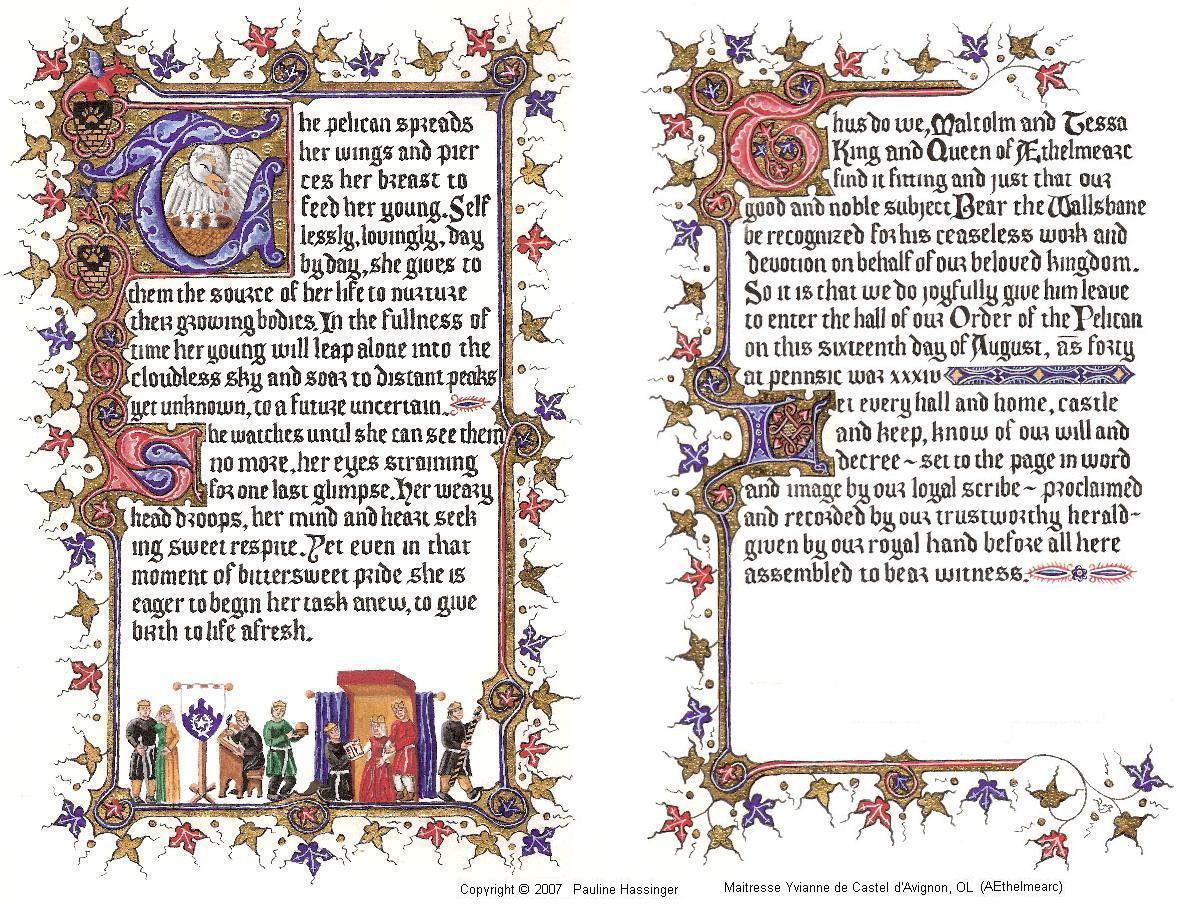 The pelican spreads
her wings and pier
ces her breast to
feed her young. Self
lessly, lovingly, day
by day, she gives to
them the source of her life to nurture
their growing bodies. In the fullness of
time her young will leap alone into the
cloudless sky and soar to distant peaks
yet unknown, to a future uncertain.
She watches until she can see them
no more, her eyes straining
for one last glimpse. Her weary
head droops, her mind and heart seek
ing sweet respite. Yet even in that
moment of bittersweet pride she is
eager to begin her task anew, to give
birth to life afresh.
Thus do we, Malcolm and Tessa
King and Queen of Æthelmearc
find it fitting and just that our
good and noble subject Bear the Wallsbane
be recognized for his ceaseless work and
devotion on behalf of our beloved kingdom.
So it is that we do joyfully give him leave
to enter the hall of our Order of the Pelican
on this sixteenth day of August, as forty
at pennsic war xxxiv
Let every hall and home, castle
and keep, know of our will and
decree ~ set to the page in word
and image by our loyal scribe ~ proclaimed
and recorded by our trustworthy herald ~
given by our royal hand before all here
assembled to bear witness.
Copyright © 2007 Pauline Hassinger
Maitresse Yvianne de Castel d'Avignon, OL (AEthelmearc)